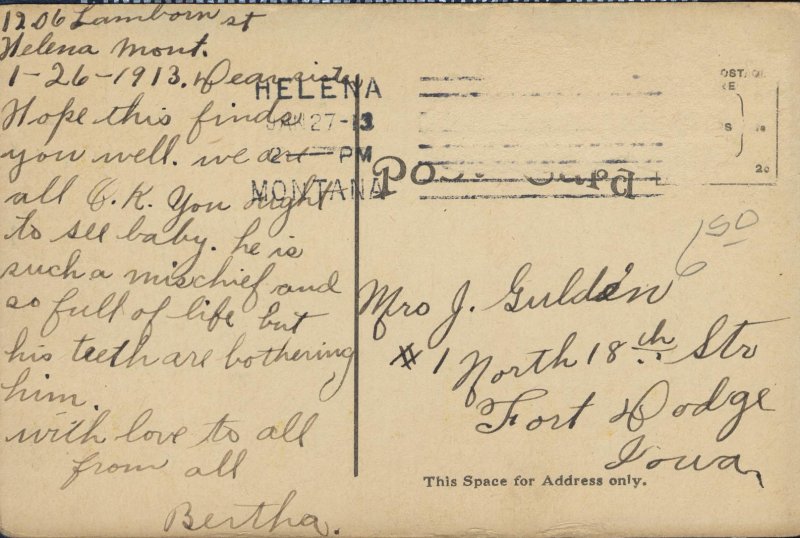 1206 Lamborn st
Helena Mont.
1-26-1913. Dear sister
Hope this finds
you well. we are
all O.K. You ought
to see baby. he is
such a mischief and
so full of life but
his teeth are bothering
him.
with love to all
from all
Bertha.
HELENA
JAN 27-13
2 — PM
MONTANA
Post Card
2c
150
Mrs J. Gulden
# 1 North 18th Str
Fort Dodge
Iowa,
This Space for Address only.